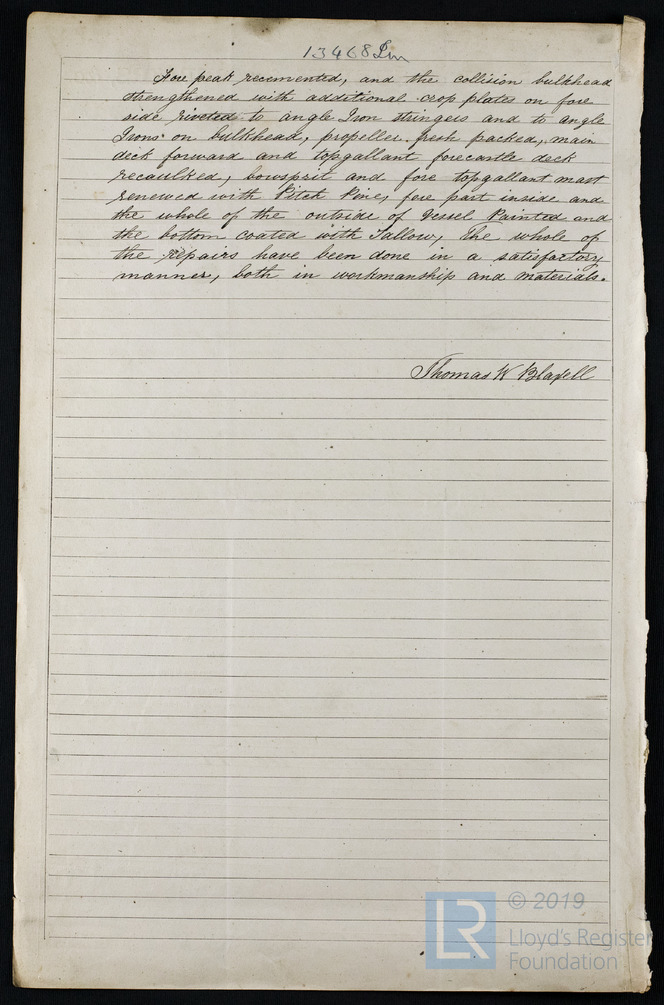 13468 Irn
Fore peak recemented, and the collision bulkhead
strengthened with additional crop plates on fore
side riveted to angle Iron stringers and to angle
Irons on bulkhead, propeller fresh packed, main
deck forward and topgallant forecastle deck
recaulked, bowsprit and fore topgallant mast
renewed with Pitch Pine, fore part inside and
the whole of the outside of Vessel Painted and
the bottom coated with Tallow, The whole of
the repairs have been done in a satisfactory
manner, both in workmanship and materials.
Thomas W Blaxell
LR © 2019
Lloyd's Register
Foundation